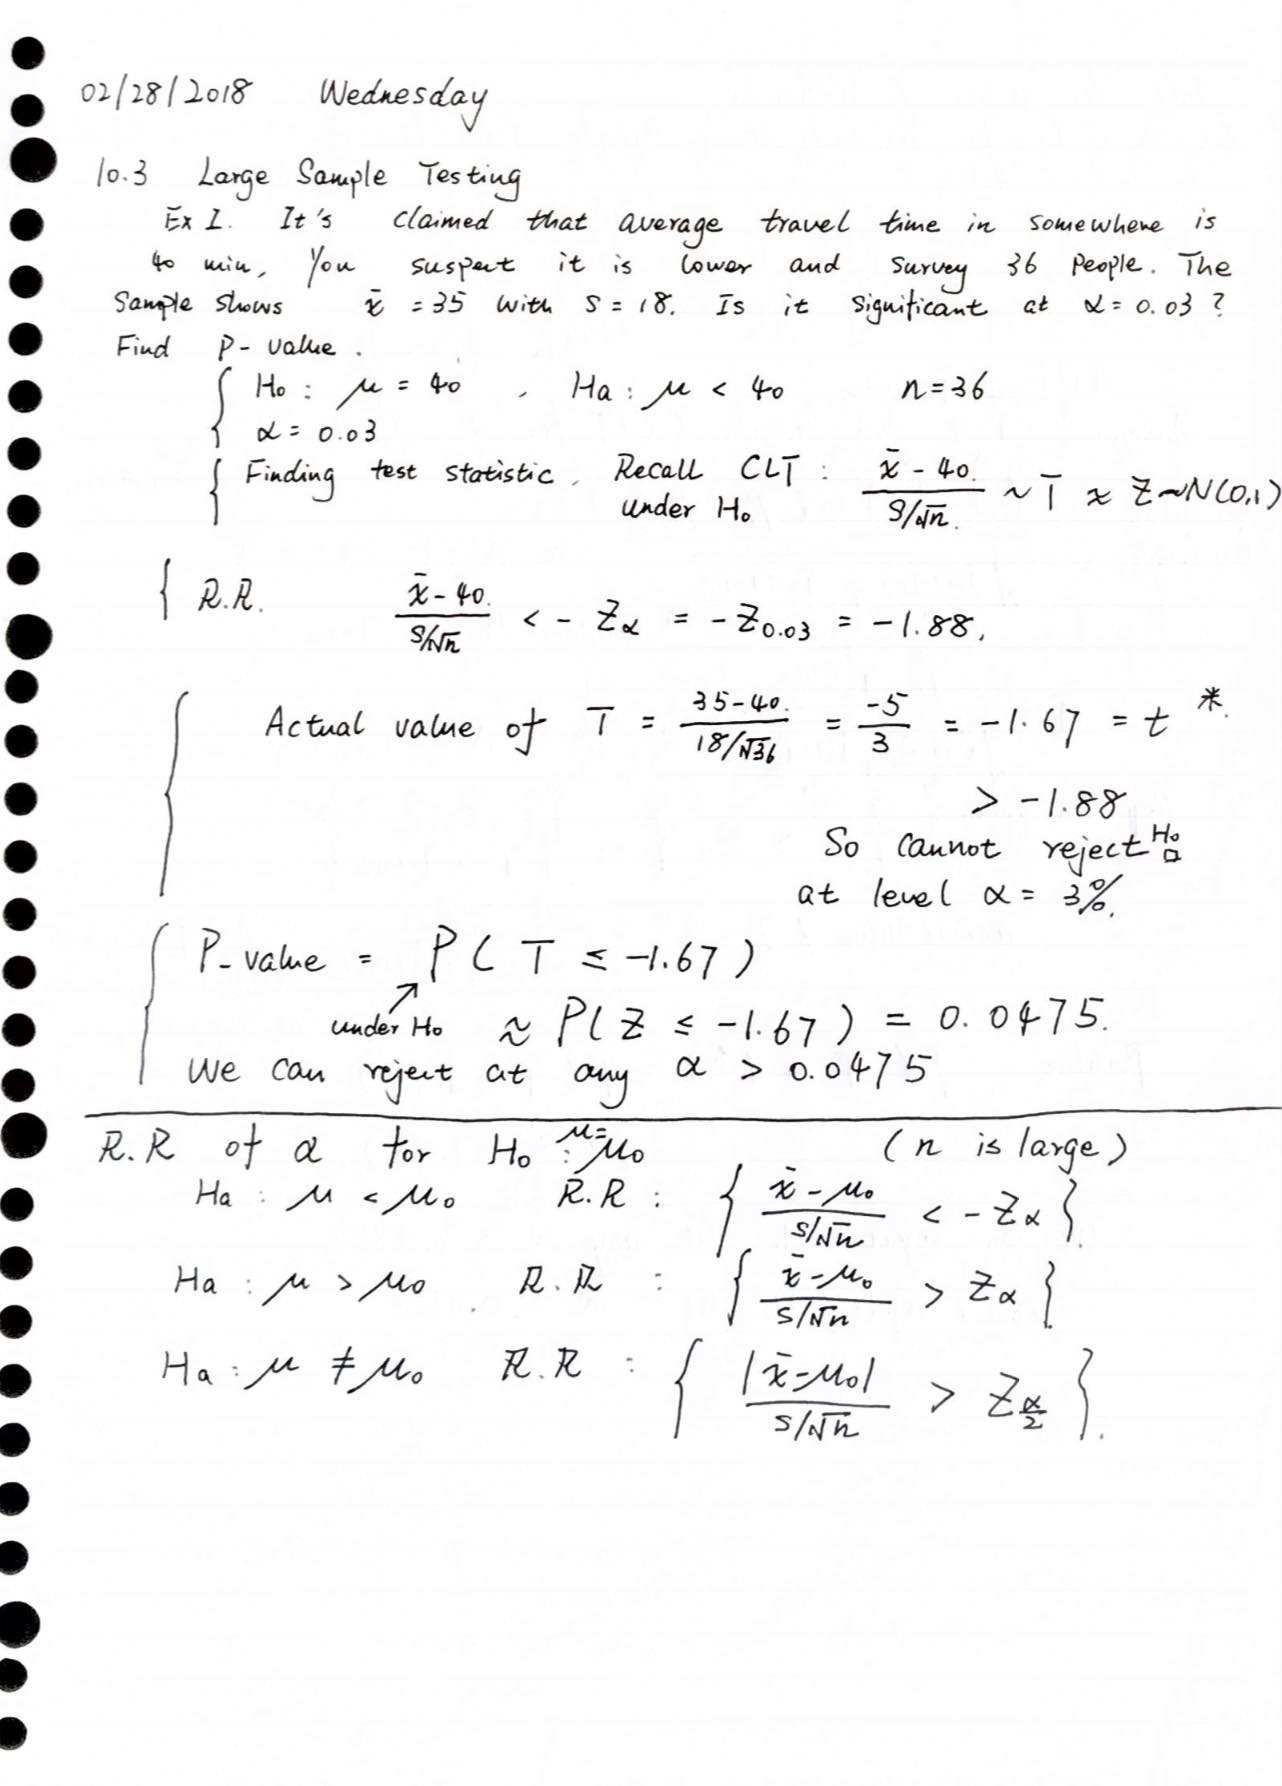 02/28/2018 Wednesday
10.3 Large Sample Testing
Ex 1. It's claimed that average travel time in somewhere is
40 min, You suspect it is lower and survey 36 people. The
Sample shows x̄ = 35 with S = 18. Is it significant at α = 0.03 ?
Find P-value.
{ H₀ : μ = 40 , Ha : μ < 40 n = 36
α = 0.03
{ Finding test statistic. Recall CLT : (x̄ - 40)/(S/√n) ~ T ≈ Z ~ N(0,1)
under H₀
{ R.R. (x̄ - 40)/(S/√n) < - Zα = - Z0.03 = -1.88,
{ Actual value of T = (35-40)/(18/√36) = -5/3 = -1.67 = t*.
> -1.88
So cannot reject H₀
at level α = 3%.
{ P-value = P( T ≤ -1.67 )
under H₀ ≈ P( Z ≤ -1.67 ) = 0.0475.
We can reject at any α > 0.0475
R.R of α for H₀ : μ = μ₀ (n is large)
Ha : μ < μ₀ R.R : { (x̄ - μ₀)/(S/√n) < - Zα }
Ha : μ > μ₀ R.R : { (x̄ - μ₀)/(S/√n) > Zα }
Ha : μ ≠ μ₀ R.R : { |x̄ - μ₀|/(S/√n) > Zα/2 }.